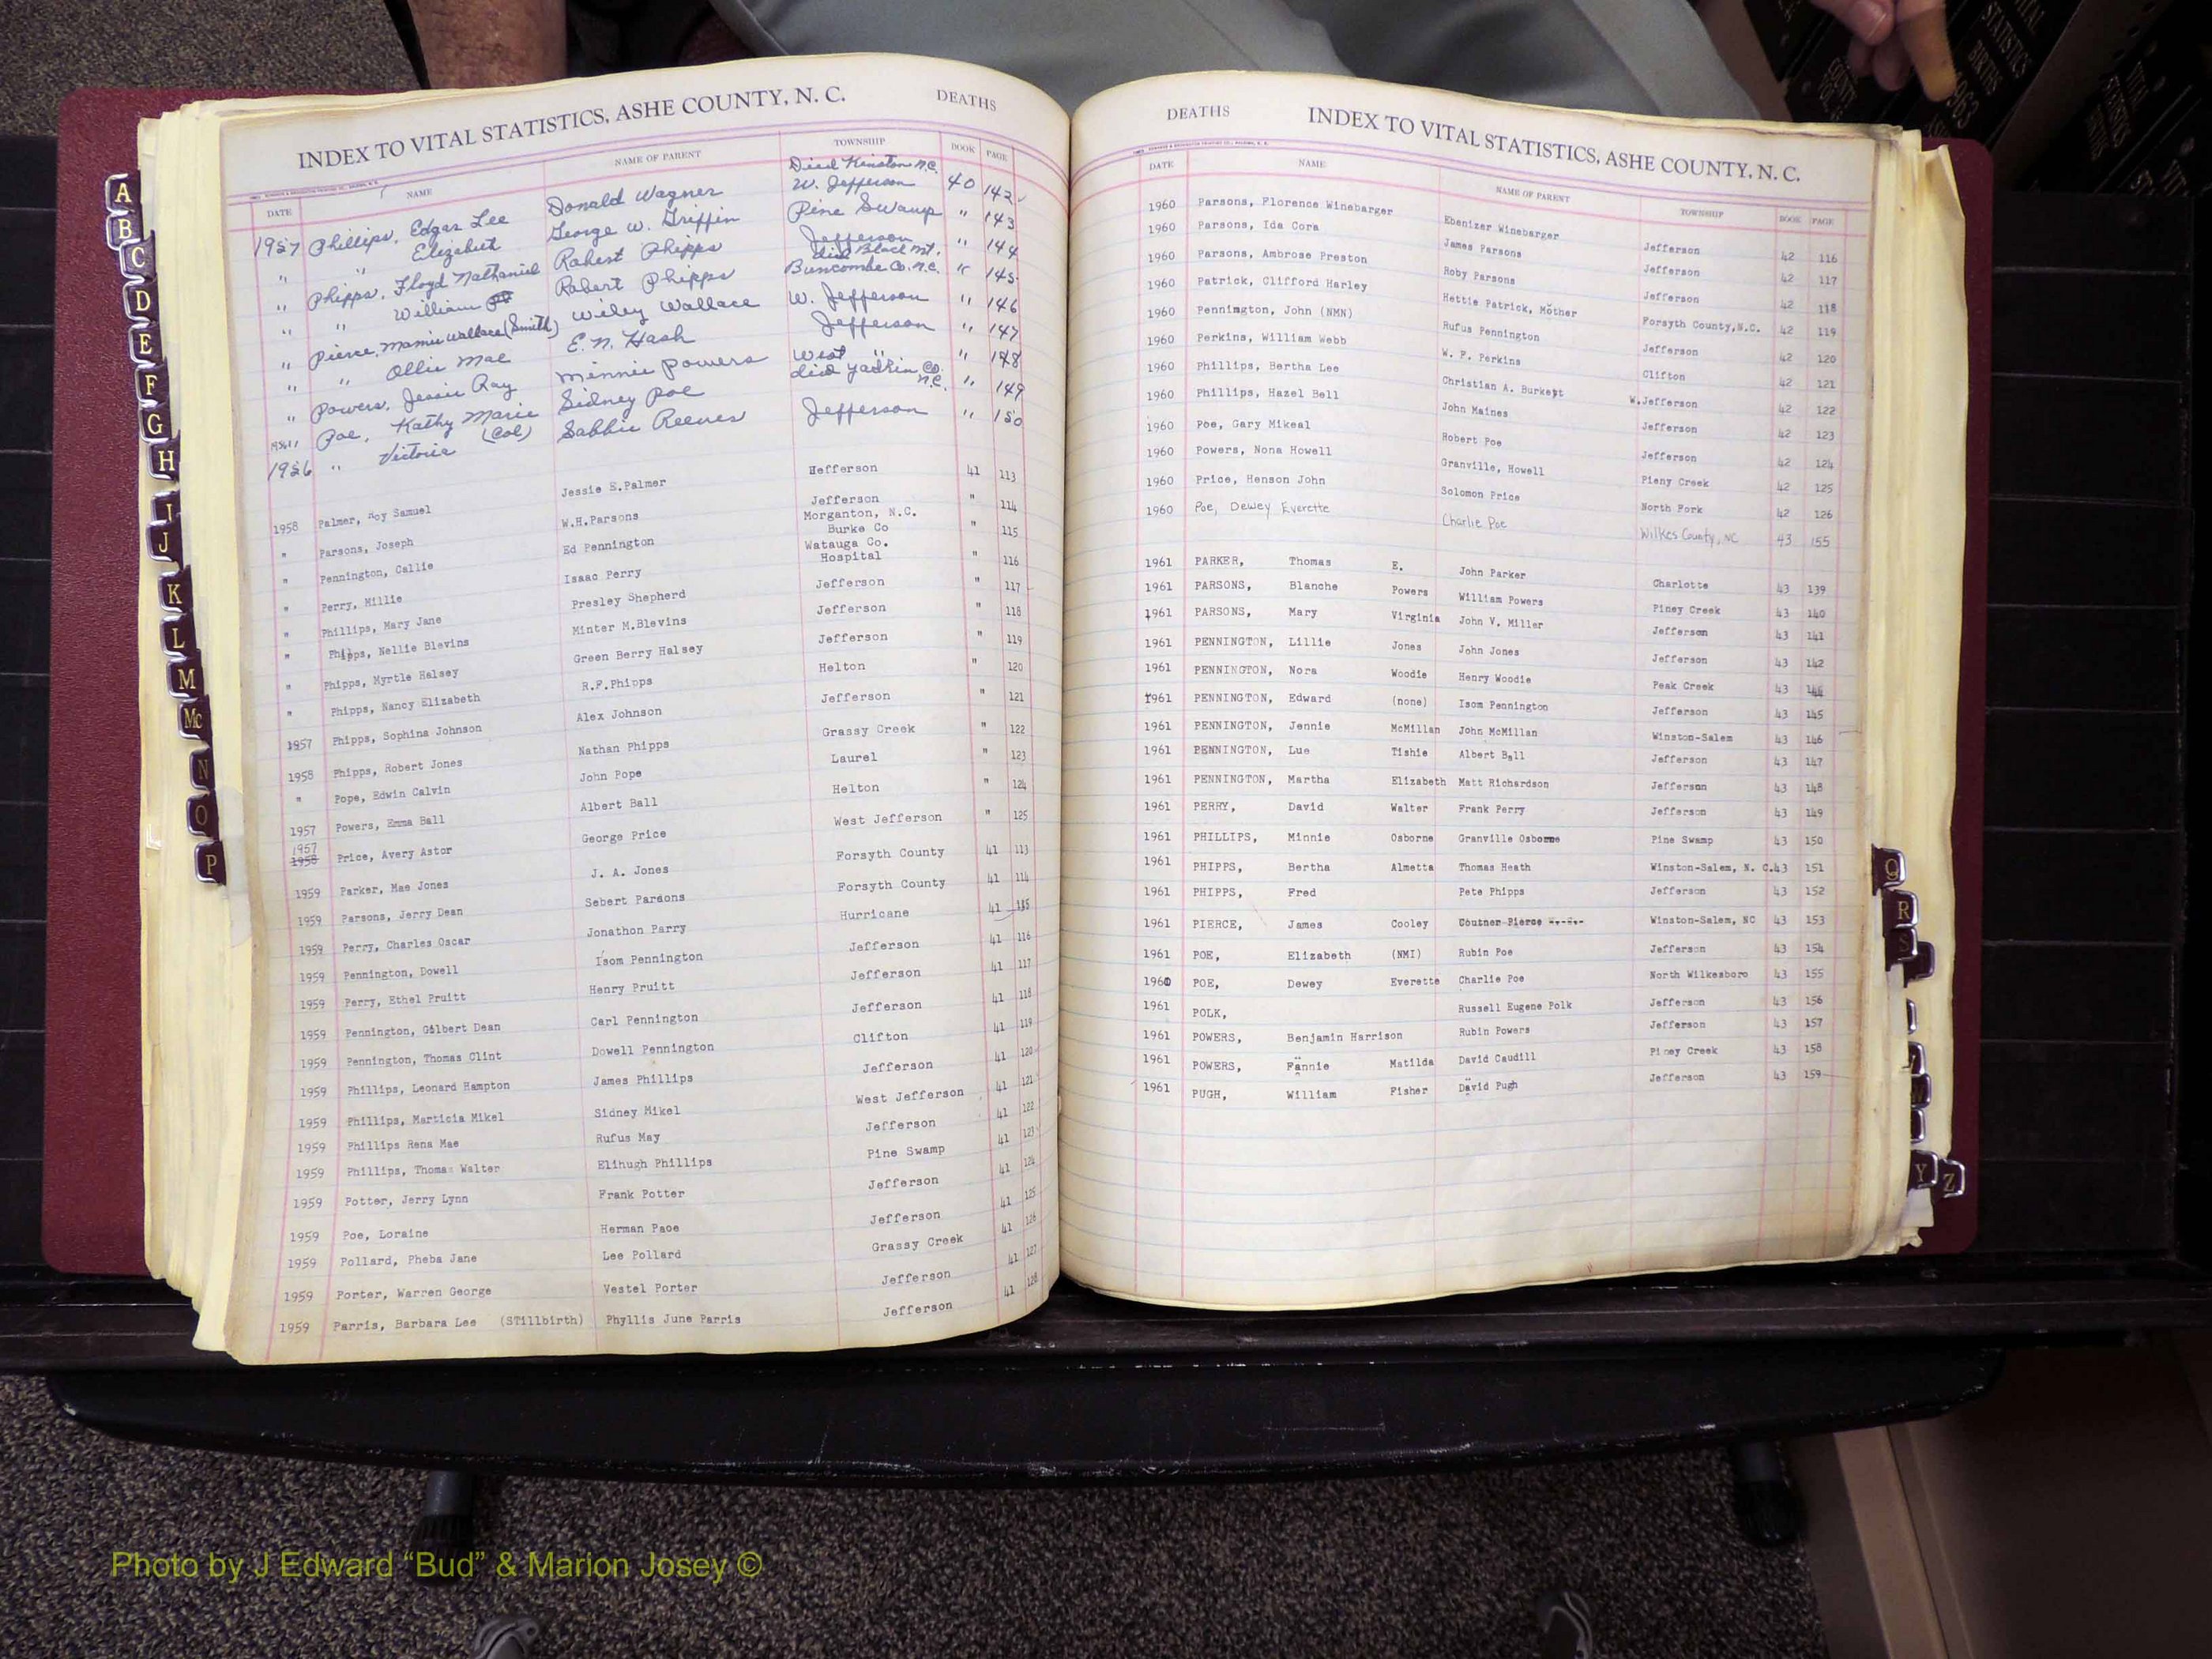 INDEX TO VITAL STATISTICS, ASHE COUNTY, N. C. DEATHS
DATE NAME NAME OF PARENT TOWNSHIP BOOK PAGE
Died Kinston N.C.
1957 Phillips, Edgar Lee Donald Wagner W. Jefferson 40 142
" " Elizabet George W. Griffin Pine Swamp " 143
" Phipps, Floyd Nathaniel Robert Phipps Jefferson " 144
died Black Mt.
" " William Robert Phipps Buncombe Co. N.C. " 145
" Pierce, Mamie Wallace (Smith) Wiley Wallace W. Jefferson " 146
" " Ollie Mae E. N. Hash Jefferson " 147
" Powers, Jessie Ray Minnie Powers West " " 148
Poe, Kathy Marie Sidney Poe died Yadkin Co. N.C. " 149
1956 " Victoria (Col) Sabbie Reeves Jefferson " 150
1958 Palmer, Roy Samuel Jessie E.Palmer Hefferson 41 113
" Parsons, Joseph W.H.Parsons Jefferson " 114
" Pennington, Callie Ed Pennington Morganton, N.C. Burke Co " 115
" Perry, Millie Isaac Perry Watauga Co. Hospital " 116
" Phillips, Mary Jane Presley Shepherd Jefferson " 117
" Phipps, Nellie Blevins Minter M.Blevins Jefferson " 118
" Phipps, Myrtle Halsey Green Berry Halsey Jefferson " 119
" Phipps, Nancy Elizabeth R.F.Phipps Helton " 120
1957 Phipps, Sophina Johnson Alex Johnson Jefferson " 121
1958 Phipps, Robert Jones Nathan Phipps Grassy Creek " 122
" Pope, Edwin Calvin John Pope Laurel " 123
1957 Powers, Emma Ball Albert Ball Helton " 124
1957
1958 Price, Avery Astor George Price West Jefferson " 125
1959 Parker, Mae Jones J. A. Jones Forsyth County 41 113
1959 Parsons, Jerry Dean Sebert Pardons Forsyth County 41 114
1959 Perry, Charles Oscar Jonathon Parry Hurricane 41 115
1959 Pennington, Dowell Isom Pennington Jefferson 41 116
1959 Perry, Ethel Pruitt Henry Pruitt Jefferson 41 117
1959 Pennington, Gilbert Dean Carl Pennington Jefferson 41 118
1959 Pennington, Thomas Clint Dowell Pennington Clifton 41 119
1959 Phillips, Leonard Hampton James Phillips Jefferson 41 120
1959 Phillips, Marticia Mikel Sidney Mikel West Jefferson 41 121
1959 Phillips Rena Mae Rufus May Jefferson 41 122
1959 Phillips, Thomas Walter Elihugh Phillips Pine Swamp 41 123
1959 Potter, Jerry Lynn Frank Potter Jefferson 41 124
1959 Poe, Loraine Herman Paoe Jefferson 41 125
1959 Pollard, Pheba Jane Lee Pollard Grassy Creek 41 126
1959 Porter, Warren George Vestel Porter Jefferson 41 127
1959 Parris, Barbara Lee (STillbirth) Phyllis June Parris Jefferson 41 128
DEATHS INDEX TO VITAL STATISTICS, ASHE COUNTY, N. C.
DATE NAME NAME OF PARENT TOWNSHIP BOOK PAGE
1960 Parsons, Florence Winebarger Ebenizer Winebarger Jefferson 42 116
1960 Parsons, Ida Cora James Parsons Jefferson 42 117
1960 Parsons, Ambrose Preston Roby Parsons Jefferson 42 118
1960 Patrick, Clifford Harley Hettie Patrick, Mother Forsyth County,N.C. 42 119
1960 Pennington, John (NMN) Rufus Pennington Jefferson 42 120
1960 Perkins, William Webb W. F. Perkins Clifton 42 121
1960 Phillips, Bertha Lee Christian A. Burkept W.Jefferson 42 122
1960 Phillips, Hazel Bell John Maines Jefferson 42 123
1960 Poe, Gary Mikeal Robert Poe Jefferson 42 124
1960 Powers, Nona Howell Granville, Howell Pieny Creek 42 125
1960 Price, Henson John Solomon Price North Fork 42 126
1960 Poe, Dewey Everette Charlie Poe Wilkes County, NC 43 155
1961 PARKER, Thomas E. John Parker Charlotte 43 139
1961 PARSONS, Blanche Powers William Powers Piney Creek 43 140
1961 PARSONS, Mary Virginia John V. Miller Jefferson 43 141
1961 PENNINGTON, Lillie Jones John Jones Jefferson 43 142
1961 PENNINGTON, Nora Woodie Henry Woodie Peak Creek 43
1961 PENNINGTON, Edward (none) Isom Pennington Jefferson 43 145
1961 PENNINGTON, Jennie McMillan John McMillan Winston-Salem 43 146
1961 PENNINGTON, Lue Tishie Albert Ball Jefferson 43 147
1961 PENNINGTON, Martha Elizabeth Matt Richardson Jefferson 43 148
1961 PERRY, David Walter Frank Perry Jefferson 43 149
1961 PHILLIPS, Minnie Osborne Granville Osborne Pine Swamp 43 150
1961 PHIPPS, Bertha Almetta Thomas Heath Winston-Salem, N. C.43 151
1961 PHIPPS, Fred Pete Phipps Jefferson 43 152
1961 PIERCE, James Cooley Coutner Pierce Winston-Salem, NC 43 153
1961 POE, Elizabeth (NMI) Rubin Poe Jefferson 43 154
1960 POE, Dewey Everette Charlie Poe North Wilkesboro 43 155
1961 POLK, Russell Eugene Polk Jefferson 43 156
1961 POWERS, Benjamin Harrison Rubin Powers Jefferson 43 157
1961 POWERS, Fannie Matilda David Caudill Piney Creek 43 158
1961 PUGH, William Fisher David Pugh Jefferson 43 159
A
B
C
D
E
F
G
H
I
J
K
L
M
Mc
N
O
P
Q
R
S
Y
Z
VITAL STATISTICS BIRTHS 1963
Photo by J Edward “Bud” & Marion Josey ©